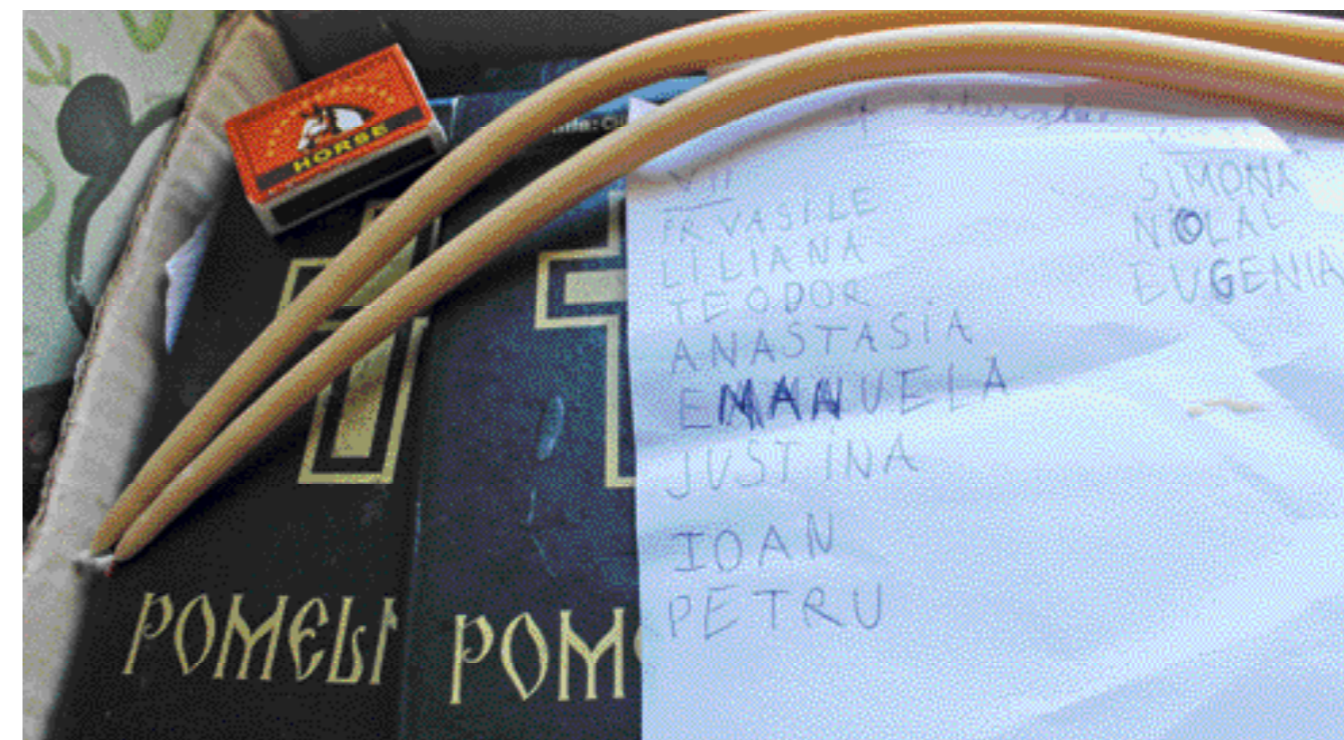 HORSE
POMELN
POM
VII
FR VASILE
LILIANA
TEODOR
ANASTASIA
EMANUELA
JUSTINA
IOAN
PETRU
SIMONA
EUGENIA